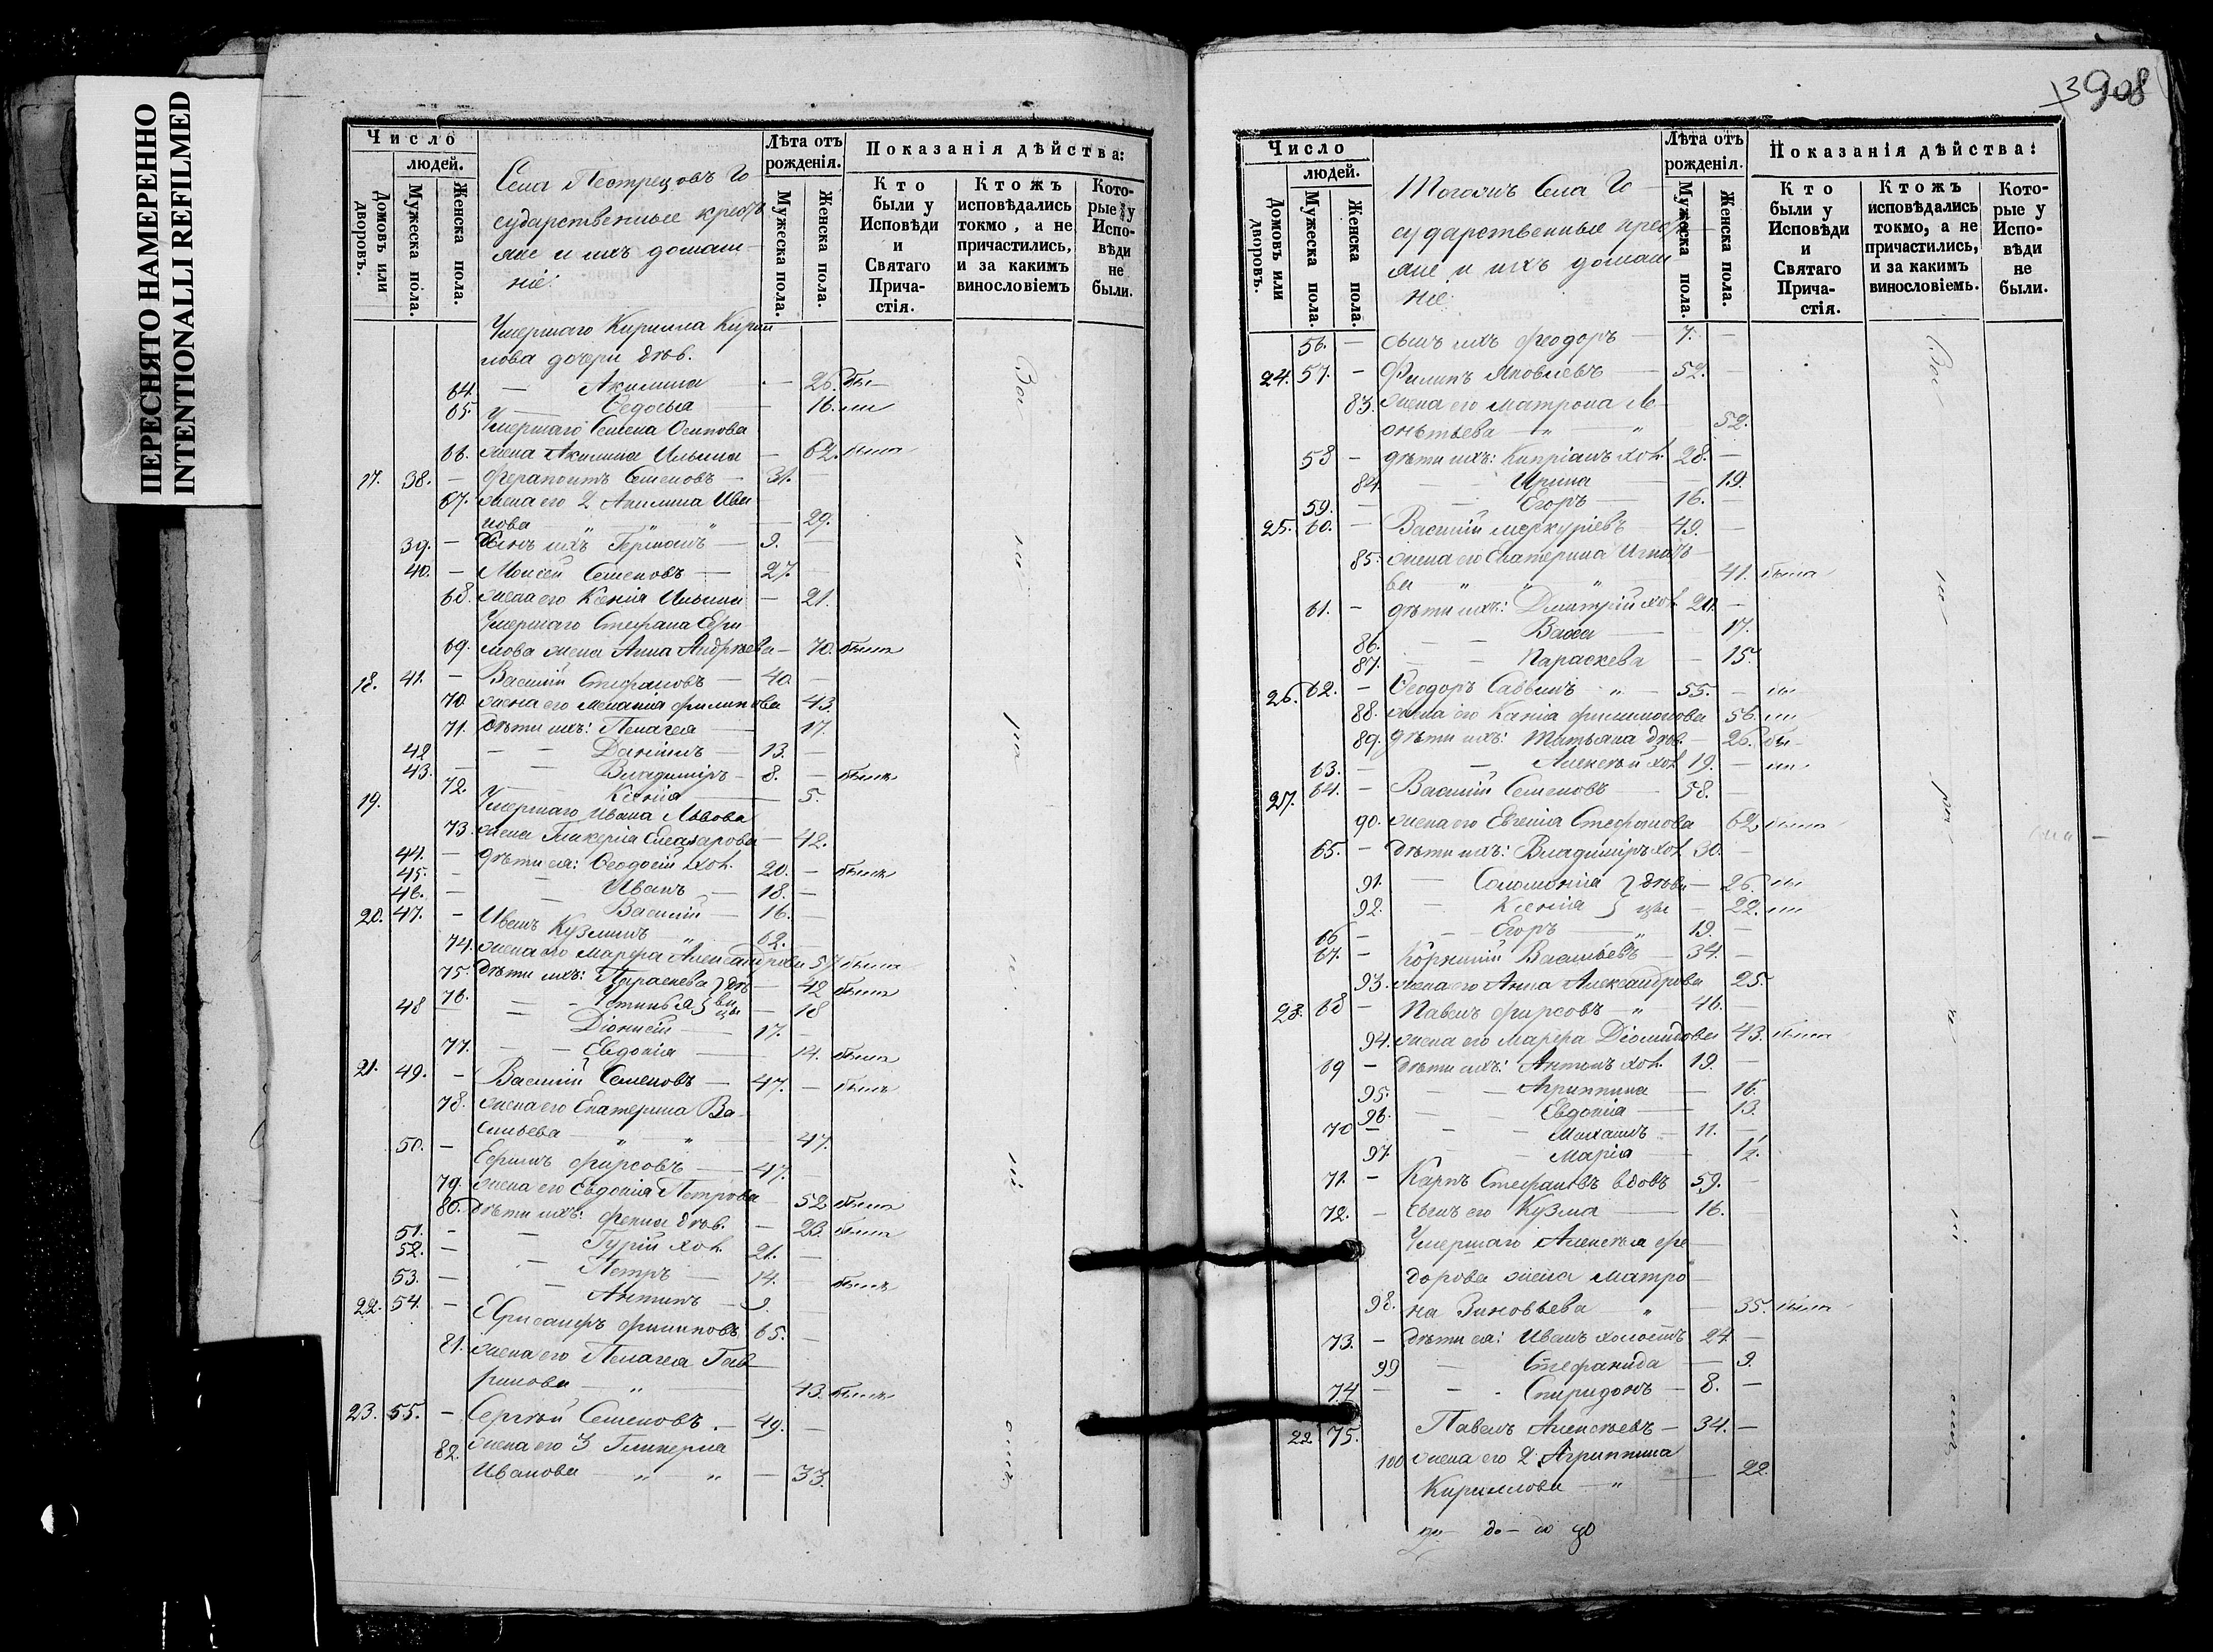 ПЕРЕСНЯТО НАМЕРЕННО
INTENTIONALLI REFILMED
Число
людей.
Домовъ или дворовъ.
Мужеска пола.
Женска пола.
Села Пестрецовъ Го
сударственные кресть
яне и ихъ домаш-
ніе.
Лѣта отъ рожденія.
Мужеска пола.
Женска пола.
Показанія дѣйства:
Кто были у Исповѣди и Святаго Причастія.
Ктожъ исповѣдались токмо, а не причастились, и за какимъ винословіемъ
Которые у Исповѣди не были.
Умершаго Кирилла Кирил
лова дочери дѣв.
64. — Акилина — 26. бы-
65. — Ѳедосья 16. ли
Умершаго Семена Осипова
66. жена Акилина Ильина — 62. была
17. 38. — Ферапонтъ Семеновъ — 31.
67. жена его 2 Акилина Ива
нова — 29.
39. — Сынъ ихъ Германъ — 9. —
40. — Моисей Семеновъ — 27. —
68. жена его Ксенія Ильина — 21.
Умершаго Стефана Ефи
69. мова жена Анна Андреева — 70. была
18. 41. — Василій Стефановъ — 40. —
70 жена его Меланія Филипова 43.
71. дѣти ихъ: Пелагея — 17.
42 — — Даніилъ — 13. —
43. — — Владиміръ — 8. — былъ
72. Ксенія — 5.
19. Умершаго Ивана Львова
73. жена Гликерія Елеазарова — 42.
44. — дѣти ея: Ѳеодосій хол. 20. — былъ
45. — — Иванъ — 18. —
46. — — Василій — 16. —
20. 47. — Иванъ Кузминъ — 62. —
74. жена его Марфа Александрова 57 была
75. дѣти ихъ: Параскева } дѣ — 42 была
76. — — Устинья } вицы — 18
48 — — Діонисій — 17. —
77. — — Евдокія — 14. была
21. 49. — Василій Семеновъ — 47. — былъ
78. жена его Екатерина Ва-
сильева — " " — 47.
50. — Ефимъ Фирсовъ — 47. —
79. жена его Евдокія Петрова 52 была
80. дѣти ихъ: Фекла дѣв. — 23. была
51. — — Гурій хол. 21. —
52. — — Петръ — 14. —
53. — — Антипъ — 9. былъ
22. 54. — Хрисанфъ Филиповъ 65. —
81. жена его Пелагея Гав
рилова — " — 43. была
23. 55. — Сергѣй Семеновъ — 49. —
82. жена его 3 Гликерія
Иванова — " — " — 33.
Во
ис
ии
908
Число
людей.
Домовъ или дворовъ.
Мужеска пола.
Женска пола.
Тогожъ Села Го
сударственные кресть
яне и ихъ домаш
ніе.
Лѣта отъ рожденія.
Мужеска пола.
Женска пола.
Показанія дѣйства:
Кто были у Исповѣди и Святаго Причастія.
Ктожъ исповѣдались токмо, а не причастились, и за какимъ винословіемъ.
Которые у Исповѣди не были.
56. — сынъ ихъ Феодоръ — 7. —
24. 57. — Филипъ Яковлевъ — 52. —
83. жена его Матрона Ле-
онтьева — " — " 52.
58 — дѣти ихъ: Кипріанъ хол. 28. —
84. — — Ирина — 19.
59. — — Егоръ — 16. —
25. 60. — Василій Меркуріевъ — 49. —
85. жена его Екатерина Игнать-
ва " " " 41. была
61. — дѣти ихъ: Дмитрій хол. 21. —
86. — — Васса — 17.
87. — — Параскева — 15.
26. 62. — Ѳеодоръ Саввинъ " — 55. — бы
88. жена его Ксенія Филимонова 56. ли
89. дѣти ихъ: Татьяна дѣв. — 26. бы-
63. — — Алексѣй хол. 19. — ли
27. 64. — Василій Семеновъ — 58. —
90. жена его Евгенія Стефанова 62 была
65. — дѣти ихъ: Владиміръ хол. 30. —
91. — Соломонія } дѣви — 26. бы
92. — Ксенія } цы — 22. ли
66 — — Егоръ — 19. —
67. — Корнилій Васильевъ — 34. —
93. жена его Анна Александрова 25.
28. 68 — Павелъ Фирсовъ — " — 46. —
94. жена его Марфа Діомидова 43. была
69 — дѣти ихъ: Антонъ хол. 19. —
95. — — Агрипина — 16.
96. — — Евдокія — 13.
70 — — — Михаилъ — 11. —
97. — Марія — 1/2.
71. — Карпъ Стефановъ вдовъ 59. —
72. — сынъ его Кузма — 16.
Умершаго Алексѣя Фе
дорова жена Матро-
98. на Зиновьева — " — 35. была
73. — дѣти ея: Иванъ холостъ 24 —
99 — Стефанида — 9.
74 — — Спиридонъ — 8. —
22 75. Павелъ Алексѣевъ — 34. —
100 жена его 2 Агрипина
Кириллова — " 22